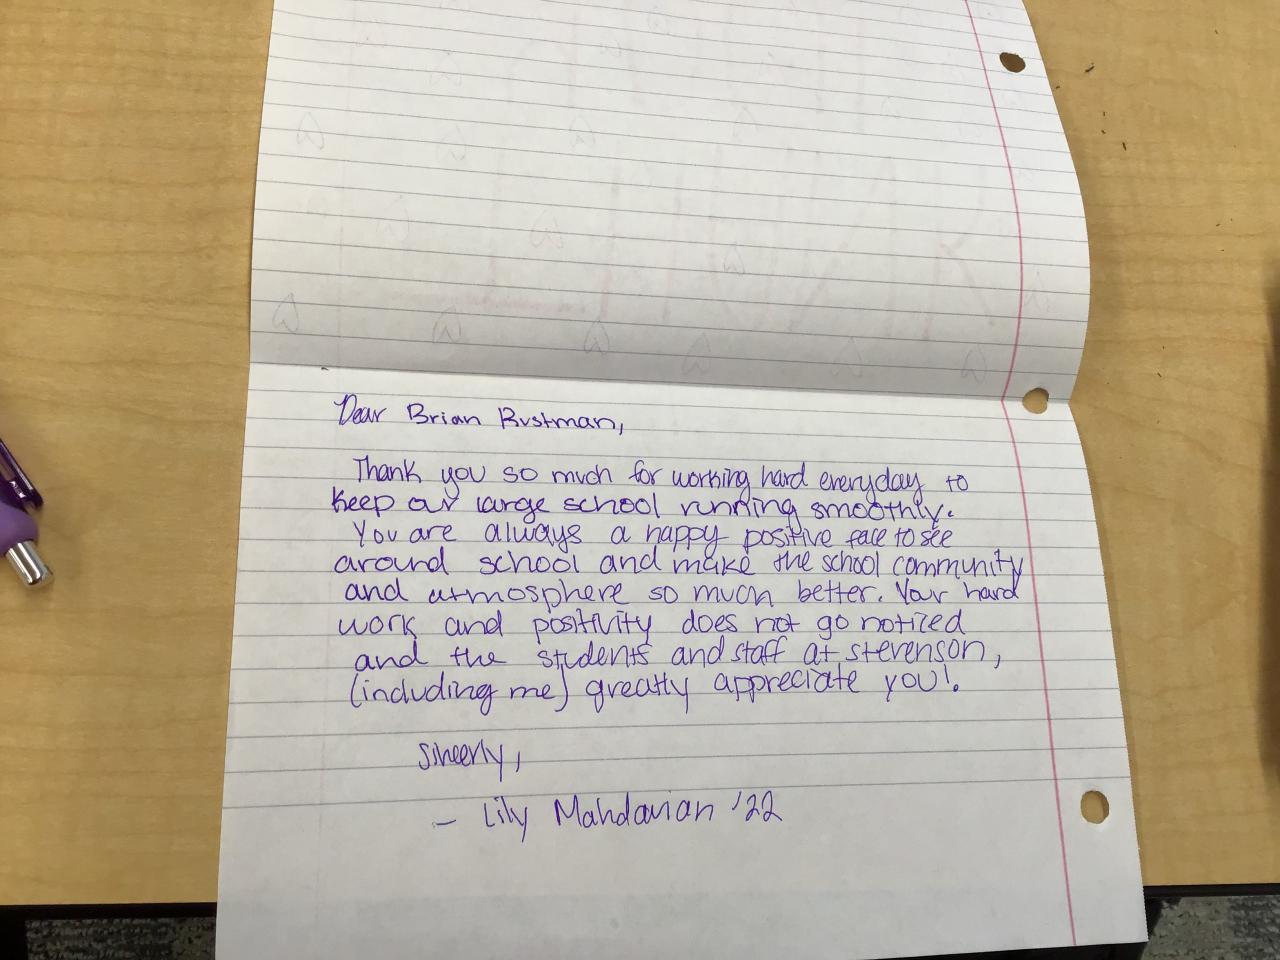 Dear Brian Bustman,
Thank you so much for working hard everyday to
keep our large school running smoothly.
You are always a happy positive face to see
around school and make the school community
and atmosphere so much better. Your hard
work and positivity does not go noticed
and the students and staff at stevenson,
(including me) greatly appreciate you!.
Sincerly,
- Lily Mahdavian '22